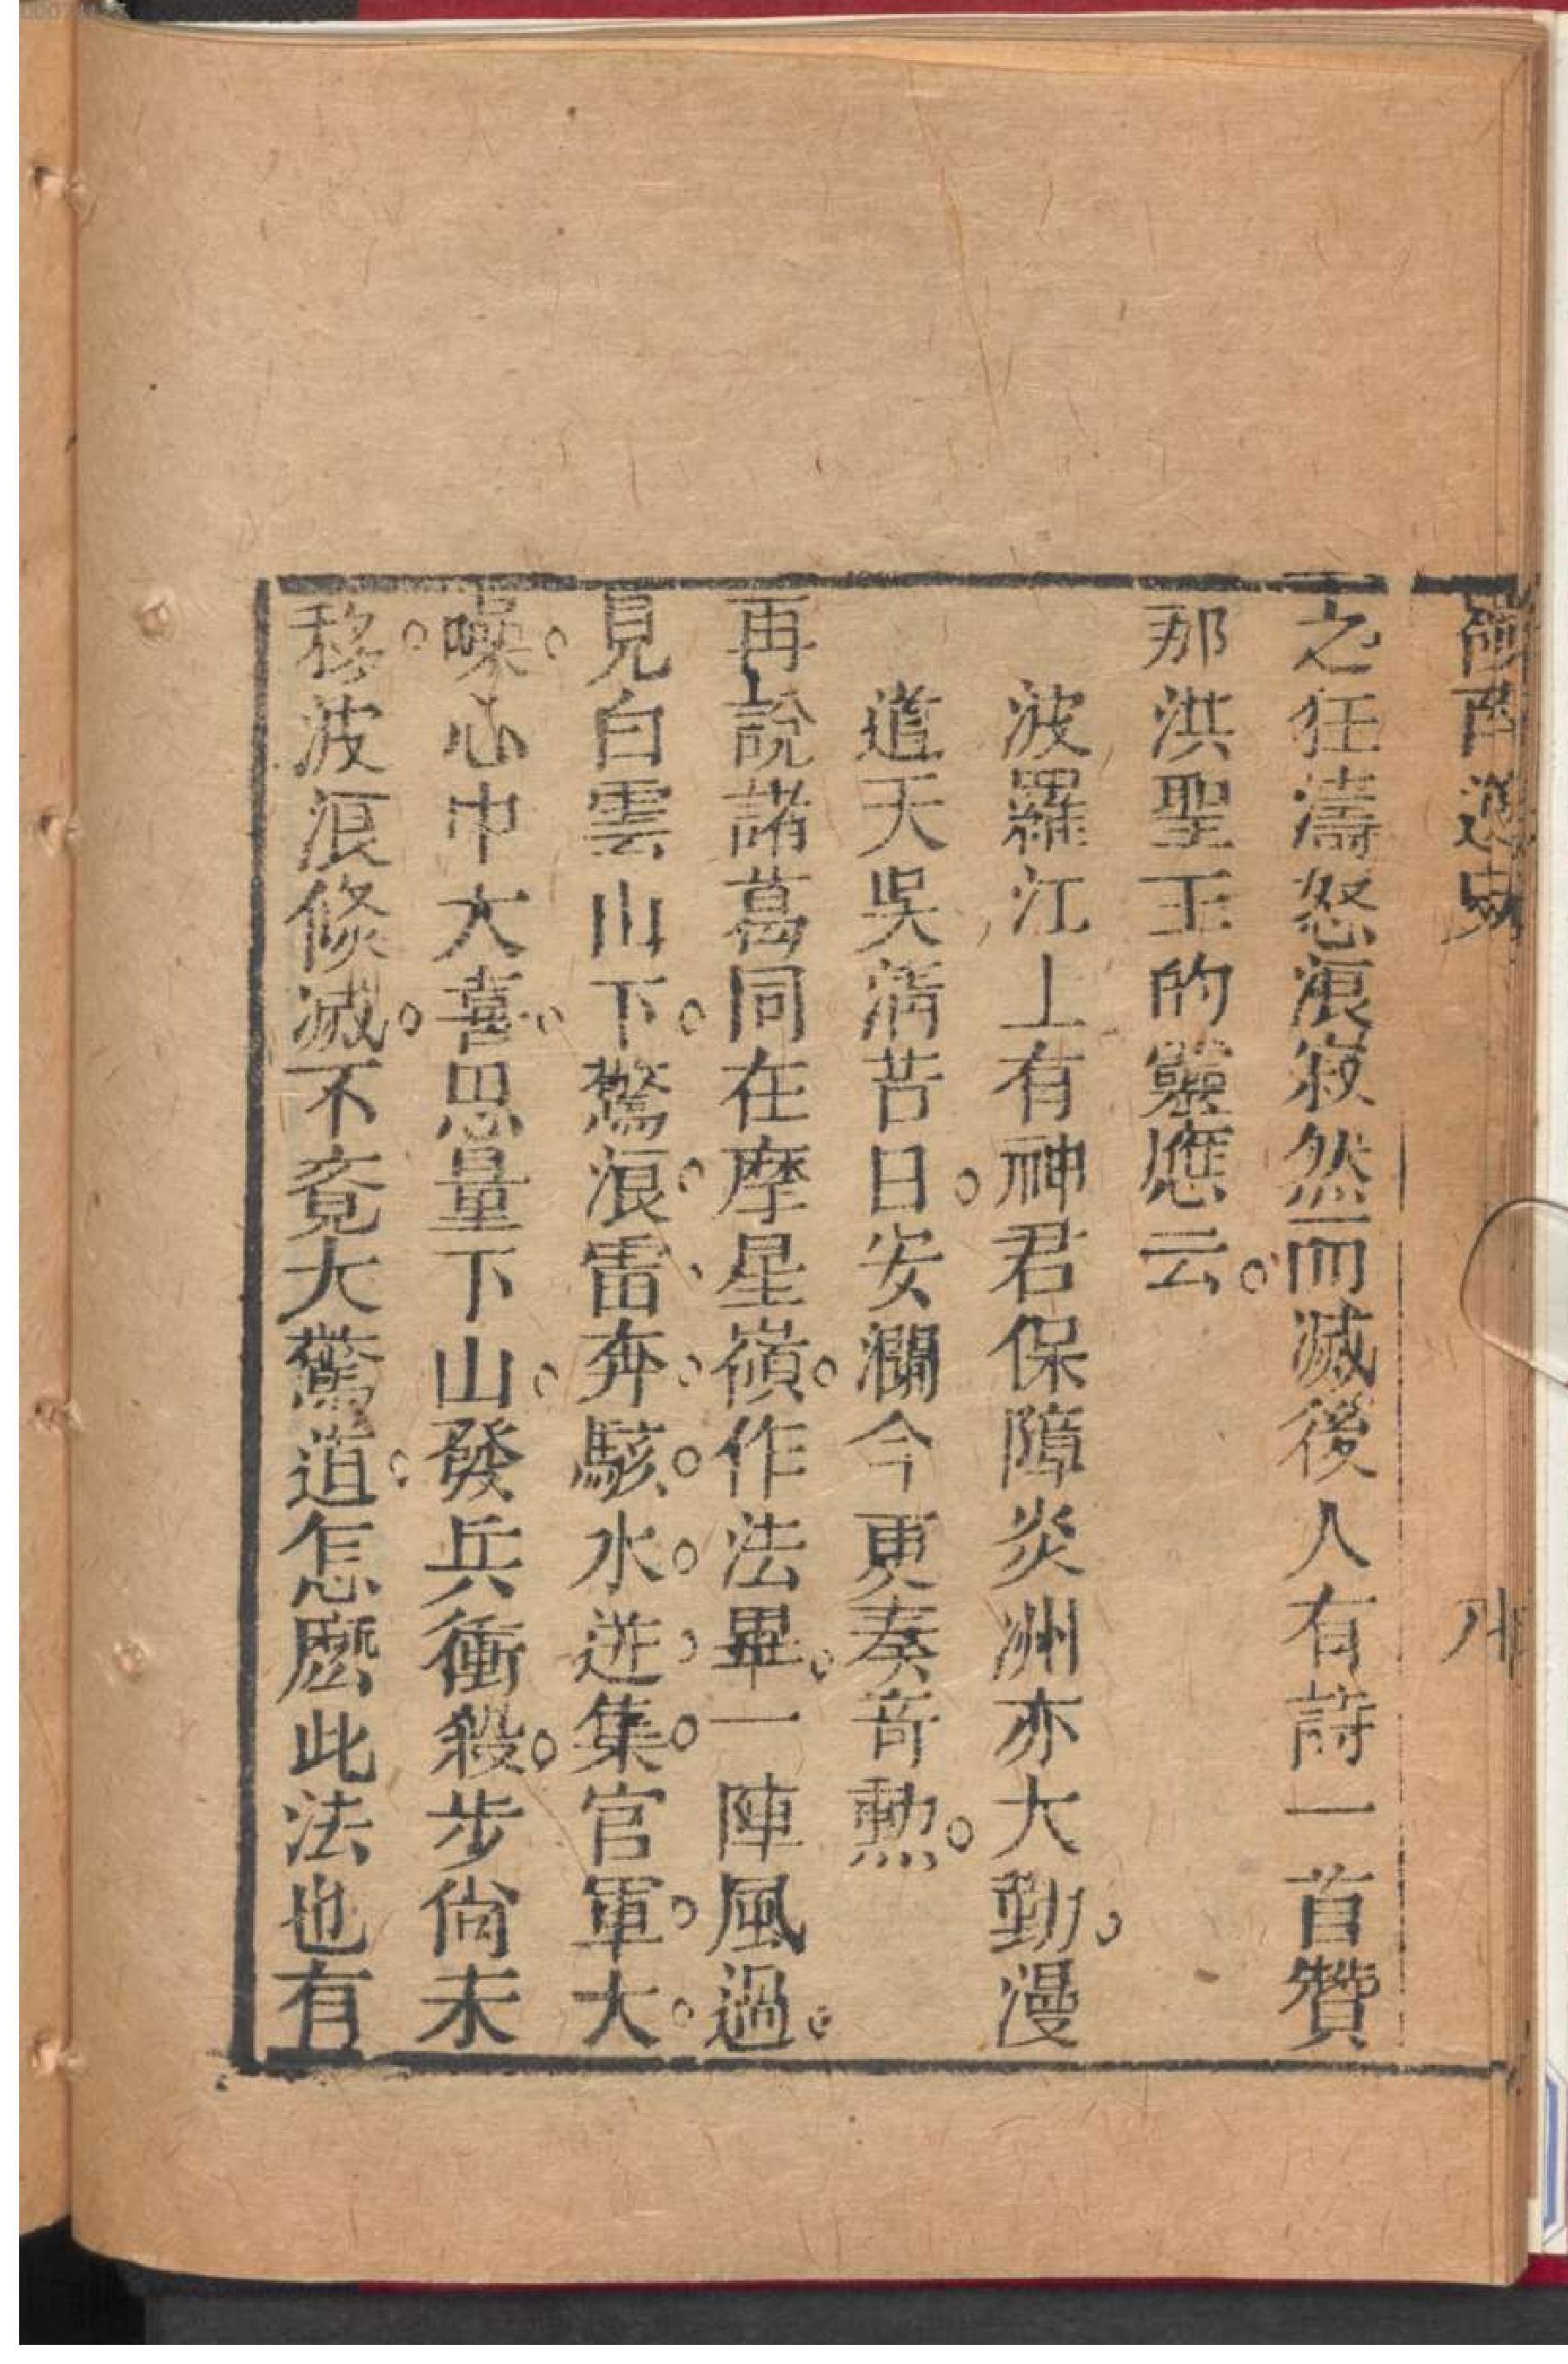 之狂濤怒浪寂然而滅後人有詩一首贊
那洪聖王的靈應云。
波羅江上有神君保障炎洲亦大勳。漫
道天吳淸苦日。安瀾今更奏奇勲。
再說諸葛同在摩星嶺。作法畢。一陣風過。
見白雲山下。驚浪。雷、奔。駭。水。遊。集。官軍。大。
噪。心中大喜。思量下山。發兵衝殺。步尙未
移。波浪倐滅。不竟大驚道。怎麽此法也有